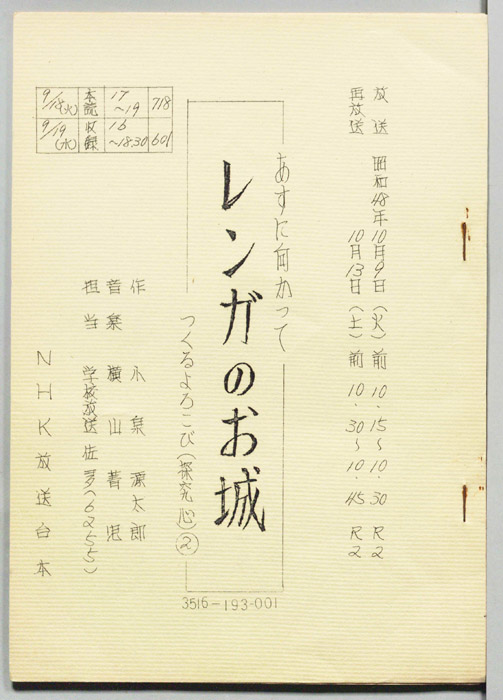 放送 昭和48年10月9日(火)前10.15~10.30 R2
再放送 10月13日(土)前10.30~10.45 R2
あすに向かって
レンガのお城
つくるよろこび(探究心)②
3516-193-001
作 小泉源太郎
音楽 横山菁児
担当 学校放送 佐多(6255)
NHK放送台本
9/18(火) 本読 17~19 718
9/19(水) 収録 16~18.30 601